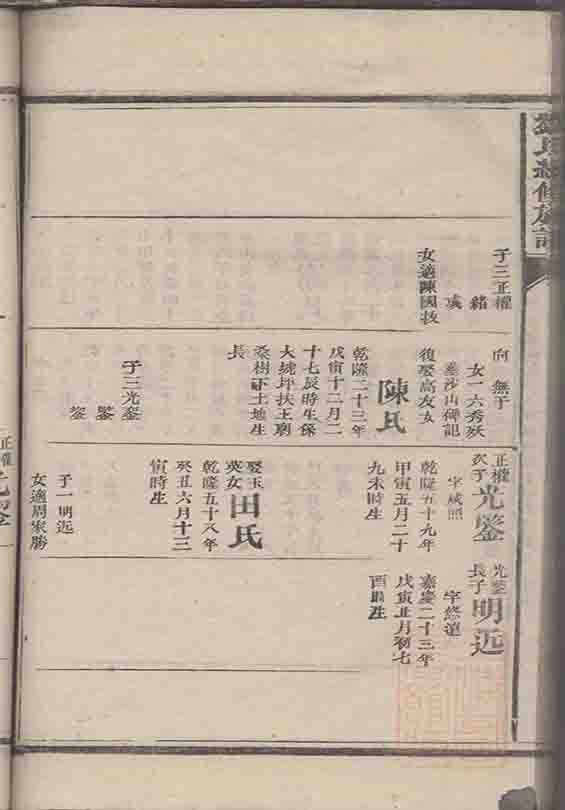 氏續修族譜
子三正權
緒
女適陳國
向 無子
女一六秀歿
墓沙山碑記
復娶高友女
陳氏
乾隆二十三年
戊寅十二月二
十七辰時生保
大垅坪扶王廟
桑樹下土地生
長
子三光鋆
鑒
崟
正權
次子
光鑒
字咸照
乾隆五十九年
甲寅五月二十
九未時生
娶玉
英女
田氏
乾隆五十八年
癸丑六月十三
寅時生
子一明近
女適周家勝
光鑒
長子
明近
字悠遠
嘉慶二十三年
戊寅正月初七
酉時生
正權